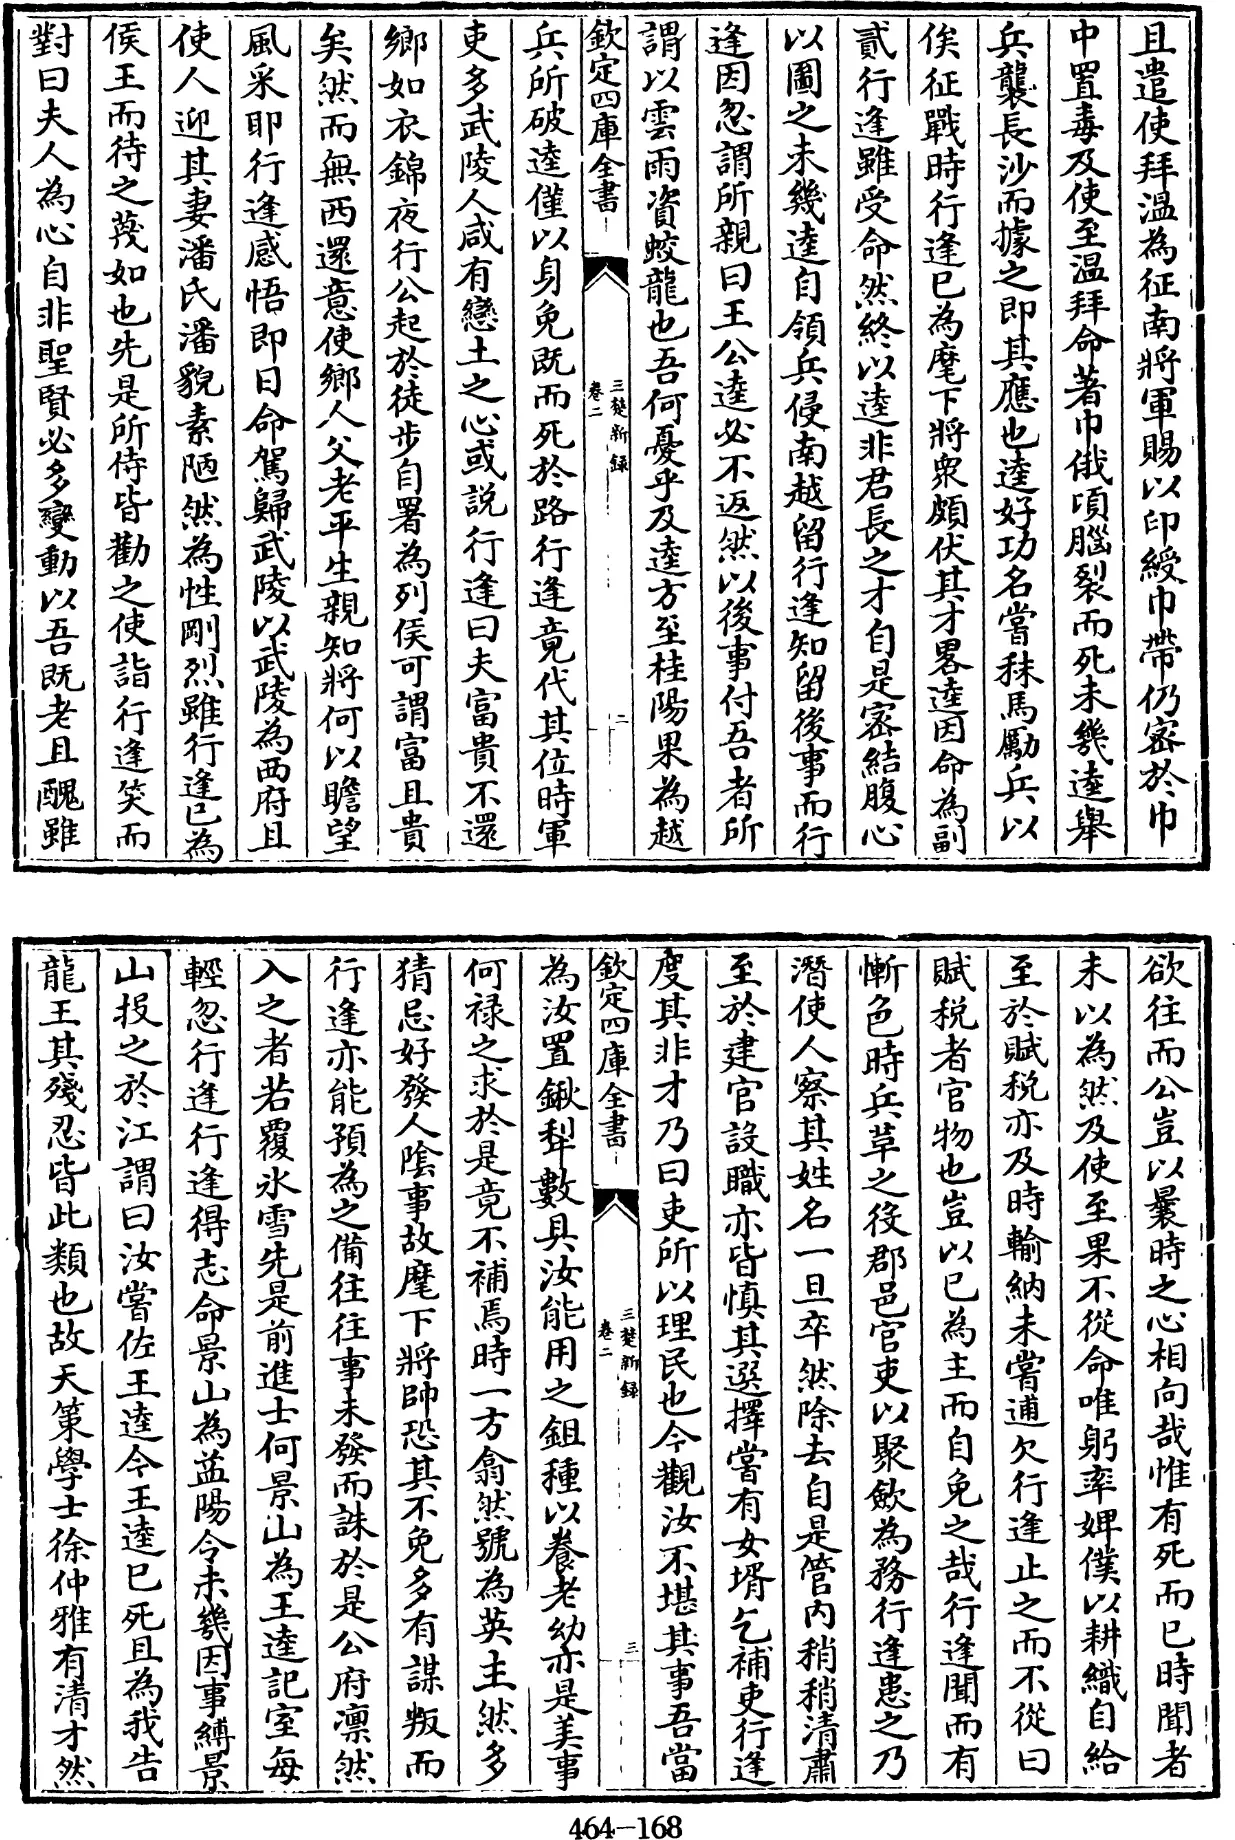 且遣使拜温為征南將軍賜以印綬巾帶仍密於巾
中置毒及使至温拜命著巾俄頃腦裂而死未幾逵舉
兵襲長沙而據之即其應也逵好功名嘗秣馬勵兵以
俟征戰時行逢已為麾下將衆頗伏其才畧逵因命為副
貳行逢雖受命然終以逵非君長之才自是密結腹心
以圖之未幾逵自領兵侵南越留行逢知留後事而行
逢因忽謂所親曰王公逵必不返然以後事付吾者所
謂以雲雨資蛟龍也吾何憂乎及逵方至桂陽果為越
欽定四庫全書
三楚新録
卷二
二
兵所破逵僅以身免既而死於路行逢竟代其位時軍
吏多武陵人咸有戀土之心或説行逢曰夫富貴不還
鄉如衣錦夜行公起於徒步自署為列侯可謂富且貴
矣然而無西還意使鄉人父老平生親知將何以瞻望
風采耶行逢感悟即日命駕歸武陵以武陵為西府且
使人迎其妻潘氏潘貌素陋然為性剛烈雖行逢已為
侯王而待之蔑如也先是所侍皆勸之使詣行逢笑而
對曰夫人為心自非聖賢必多變動以吾既老且醜雖
欲往而公豈以曩時之心相向哉惟有死而已時聞者
未以為然及使至果不從命唯躬率婢僕以耕織自給
至於賦税亦及時輸納未嘗逋欠行逢止之而不從曰
賦税者官物也豈以已為主而自免之哉行逢聞而有
慚色時兵革之後郡邑官吏以聚歛為務行逢患之乃
潛使人察其姓名一旦卒然除去自是管内稍稍清肅
至於建官設職亦皆慎其選擇嘗有女壻乞補吏行逢
度其非才乃曰吏所以理民也今觀汝不堪其事吾當
欽定四庫全書
三楚新録
卷二
三
為汝置鍬犁數具汝能用之鉏種以養老幼亦是美事
何禄之求於是竟不補焉時一方翕然號為英主然多
猜忌好發人陰事故麾下將帥恐其不免多有謀叛而
行逢亦能預為之備往往事未發而誅於是公府凛然
入之者若覆氷雪先是前進士何景山為王逵記室每
輕忽行逢行逢得志命景山為益陽令未幾因事縛景
山投之於江謂曰汝嘗佐王逵今王逵已死且為我告
龍王其殘忍皆此類也故天策學士徐仲雅有清才然
464-168